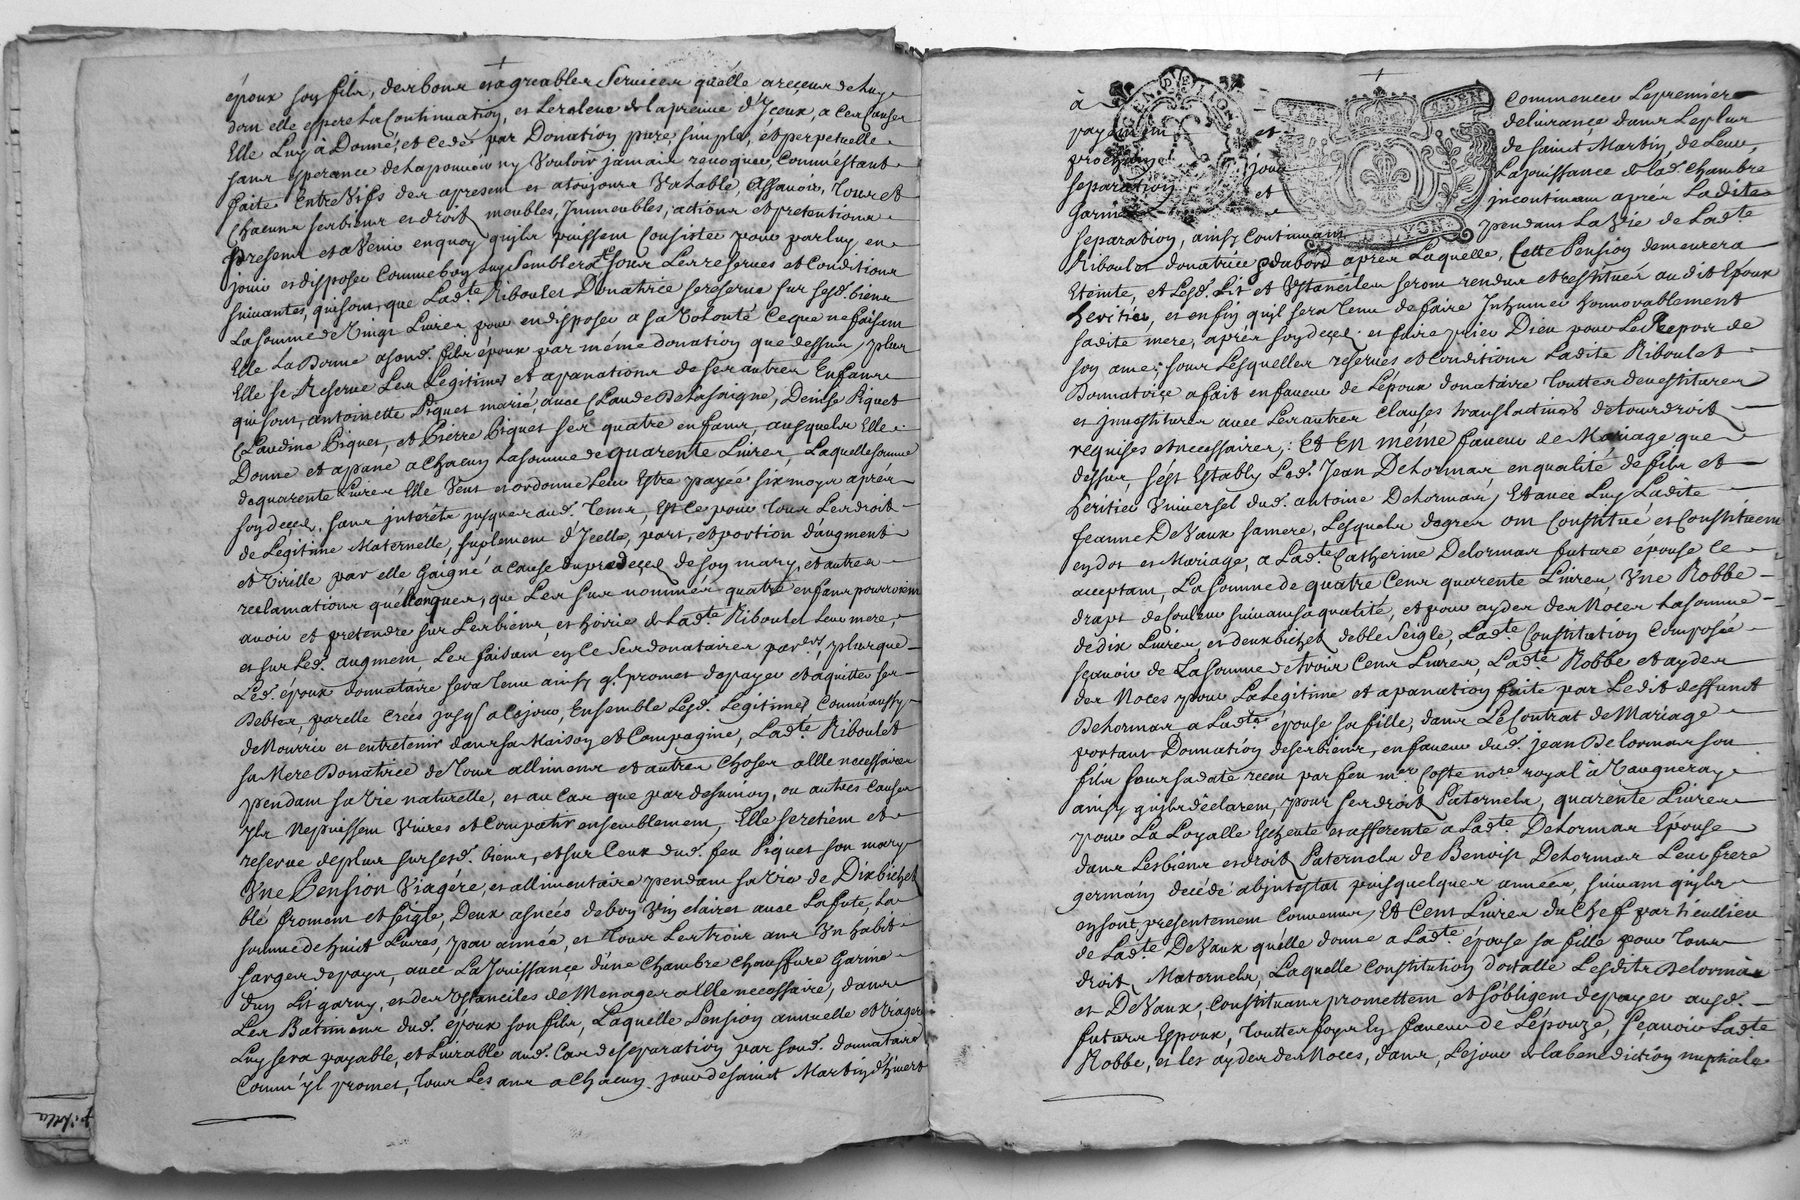 époux son fils, des bons et agreables Services qu'elle a reçeus de luy
dont elle espere La Continuation, et Les releve de la preuve d'Jceux, a ces Causes
Elle Luy à Donné, et Cedé par Donation pure, simple, et perpetuelle
sans esperance de la pouvoir ny Vouloir jamais revoquer, Comme estant
faite Entre Vifs des apresent et a toujours Valable, assavoir, tous et
Chacuns ses biens et droit meubles, Jmmeubles, actions et pretentions
presens et a Venir en quoy qu'jls puissent Consister pour par luy en
jouir et disposer Comme bon luy Semblera, sous Les reserves et Conditions
suivantes, qui sont, que Ladte Riboulet Donatrice se reserve sur sesd. biens
La somme de Vingt Livres pour en disposer a sa Volonté Ce que ne faisant
Elle La Donne a sond. fils époux par méme donation que dessus, plus
Elle se Reserve Les Legitimes et apanations de ses autres Enfans
qui sont, antoinette Piquet mariée, avec Claude Delasaigne, Denise Piquet
Claudine Piquet, et Pierre Piquet ses quatre enfans, ausquels Elle
Donne et apane a Chacun La somme de quarente Livres, Laquelle somme
de quarente Livres Elle Veut et ordonne Leur Estre payée six moys aprés
son deçez, sans jnterêts jusques aud. tems, Et Ce pour tous Les droit
de Legitime Maternelle, suplement d'Jcelle, part, et portion d'augment
et Virille par elle Gaigné a cause du predeçez de son mary, et autres
reclamations quelconques, que Les sus nommés quatre enfans pourroient
avoir et pretendre sur Les biens, et hoirie de Ladte Riboulet Leur mere,
et sur Led. augment, Les faisant en Ce Ses donataires par.ers plus que
Led. époux donnataire sera tenu ainsy ql promet de payer et aquitter ses
Debtes, par elle Creés jusqs a Ce jour, Ensemble Lesd. Legitimes Comm'aussy
de Nourrir et entretenir dans sa Maison et Compagnie, Ladte Riboulet
sa Mere Donatrice de tous allimens et autres Choses a Elle necessaires
pendant sa Vie naturelle, et au Cas que par desunion, ou autres Causes
yls Ne puissent Vivres et Compatir ensemblement, Elle se retient et
reserve de plus sur sesd. biens, et sur Ceux dud. feu Piquet son mary
Vne Pension Viagére, et allimentaire pendant sa Vie de Dix bichet
blé froment et seigle, Deux asnées de bon Vin clairet avec La fute, La
somme de huict Livres, par année, et tous Les trois ans Vn habit
sarges de pays, avec La Jouissance d'une Chambre chauffure Garnie
d'un Lit garny, et des Vstanciles de Menages a Elle necessaire, dans
Les Batimens dud. époux son fils, Laquelle Pension annuelle et Viagere
Luy sera payable, et Livrable aud. Cas de separation par sond. donnataire
Comm'jl promet, tous Les ans a Chacun jour de saint Martin d'hivert
à commencer Le premier
payement et delivrance dans Le plus
prochain jour de saint Martin, de Leur
separation et La jouissance de lad. chambre
Garnie et jncontinant aprés Ladite
separation, ainsy Continuant pendant La Vie de Ladte
Riboulet donatrice, aprés Laquelle, Cette Pension demeurera
Eteinte, et Lesd. Lit et Vstanciles seront rendus et restituer audit Epoux
heritier, et enfin qu'jl sera tenu de faire Jnhumer honnorablement
sadite mere, aprés son deçez; et faire prier Dieu pour Le Repos de
son ame; sous Lesquelles reserves et Conditions Ladite Riboulet
Donnatrice a fait en faveur de L'époux donataire toutes devestitures
et jnvestitures avec Les autres clauses translatives de tous droit
requises et necessaires,: Et En méme faveur de Mariage que
dessus, s'ést Estably Led. Jean Delormas en qualité de fils et
heritier Vniversel dud. antoine Delormas, Et avec Luy Ladite
Jeanne DeVaux sa mere, Lesquels de gres ont Constitué et Constituent
en dot et Mariage, a Ladte Catherine Delormas future épouse ce
acceptant, La somme de quatre Cent quarente Livres, Vne Robbe
drapt de Couleur suivant sa qualité, et pour ayder des Noces La somme
de dix Livres, et deux bichet de ble Seigle, Ladte Constitution Composée
sçavoir de La somme de trois Cent Livres, Ladte Robbe et aydes
des Noces pour La Legitime et apanation faite par Ledit deffunt
Delormas a Ladte épouse sa fille, dans Le Contrat de Mariage
portant Donnation de ses biens, en faveur dud. jean Delormas son
fils sous sa date reçeu par feu mre Coste nore royal à Vaugneray
ainsy qu'jls déclarent, pour ses droit Paternels, quarente Livres
pour La Loyalle Echeute et afferente a Ladte Delormas Epouse
dans Les biens et droit Paternels de Benoist Delormas Leur frere
germain decédé abjntestat puis quelques années, suivant qu'jls
en sont presentement Convenus, Et Cent Livres du Chef particullier
de Ladte DeVaux qu'elle donne a Ladte épouse sa fille pour tous
droit Maternels, Laquelle Constitution dotalle Lesdits Delormas
et DeVaux, Constituans promettent et s'obligent de payer ausd.
futurs Espoux, toutes foys En faveur de L'épouze, sçavoir Ladte
Robbe, et les aydes des Noces, dans Le jour de la benediction nuptiale